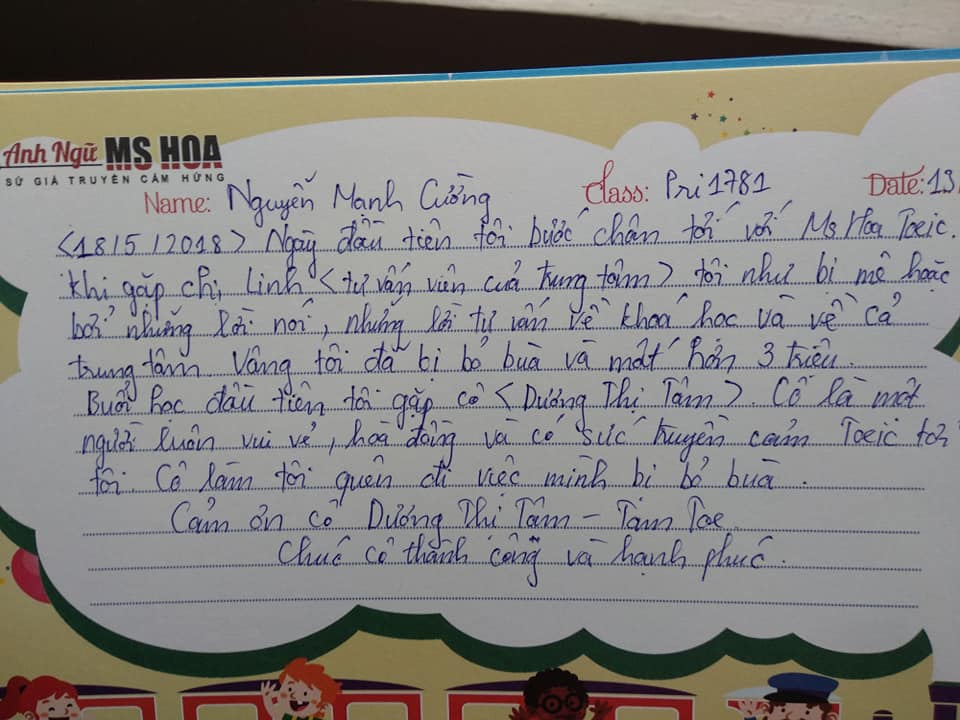 Anh Ngữ MS HOA
SỨ GIẢ TRUYỀN CẢM HỨNG
Name: Nguyễn Mạnh Cường Class: Pri 1781 Date: 13
<18/5/2018> Ngày đầu tiên tôi bước chân tới với Ms Hoa Toeic.
khi gặp chị Linh <tư vấn viên của trung tâm> tôi như bị mê hoặc
bởi những lời nói, những lời tư vấn về khoá học và về cả
trung tâm Vâng tôi đã bị bỏ bùa và mất hơn 3 triệu.
Buổi học đầu tiên tôi gặp cô <Dương Thị Tâm>. Cô là một
người luôn vui vẻ, hoà đồng và có sức truyền cảm Toeic tới
tôi. Cô làm tôi quên đi việc mình bị bỏ bùa.
Cảm ơn cô Dương Thị Tâm - Tâm Tae
Chúc cô thành công và hạnh phúc.